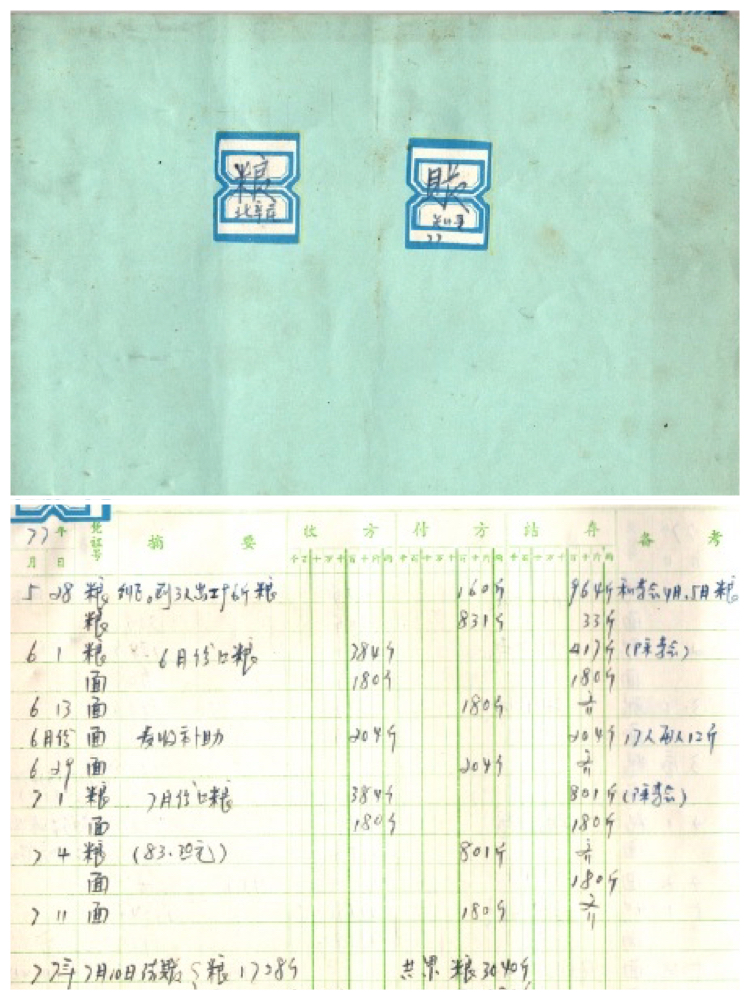 粮 账
77
77年 凭证号 摘要 收方 付方 结存 备考
月 日 千百十万千百十斤两 千百十万千百十斤两 千百十万千百十斤两
5 28 粮 160斤 964斤 4月、5月粮
粮 831斤 33斤
6 1 粮 6月份口粮 384斤 417斤
面 180斤 180斤
6 13 面 180斤
6月份 面 麦收补助 204斤 204斤 17人每人12斤
6 29 面 204斤
7 1 粮 7月份口粮 384斤 801斤
面 180斤 180斤
7 4 粮 (83.30元) 801斤
面 180斤
7 11 面 180斤
77年7月10日 粮1738斤 共界 粮3040斤